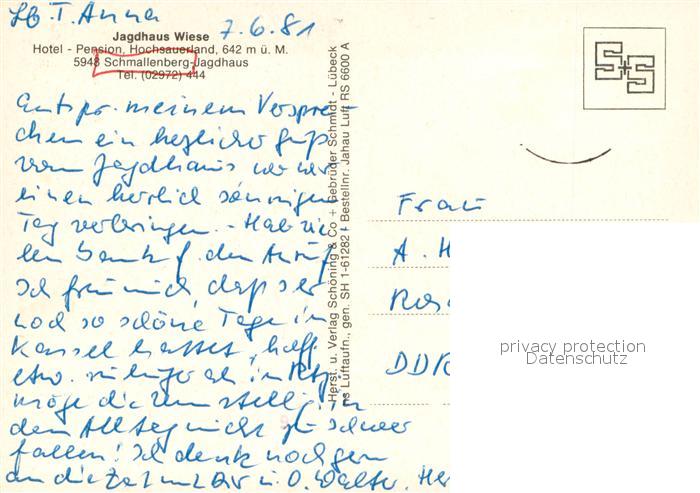 Lb. T. Anna 7.6.81
Jagdhaus Wiese
Hotel - Pension, Hochsauerland, 642 m ü. M.
5948 Schmallenberg-Jagdhaus
Tel. (02972) 444
Entspr. meinem Verspre-
chen ein herzlicher Gruß
vom Jagdhaus wo wir
einen herrlich sonnigen
Tag verbringen. - Hab vie-
len Dank f. den Anruf
Ich freu mich, daß Ihr
noch so schöne Tage in
Kassel hattet, hoff.
etw. ruhiger als in
möge die Umstellg. in
den Alltag nicht zu schwer
fallen! Ich denk noch gern
an die Zeit mit Dir u. O. Walter. Her
Herst. u. Verlag Schöning & Co + Gebrüder Schmidt - Lübeck
ns Luftaufn., gen. SH 1-61282 Bestellnr. Jahau Luft RS 6600 A
S+S
Frau
A. H
Ros
DDR
privacy protection
Datenschutz